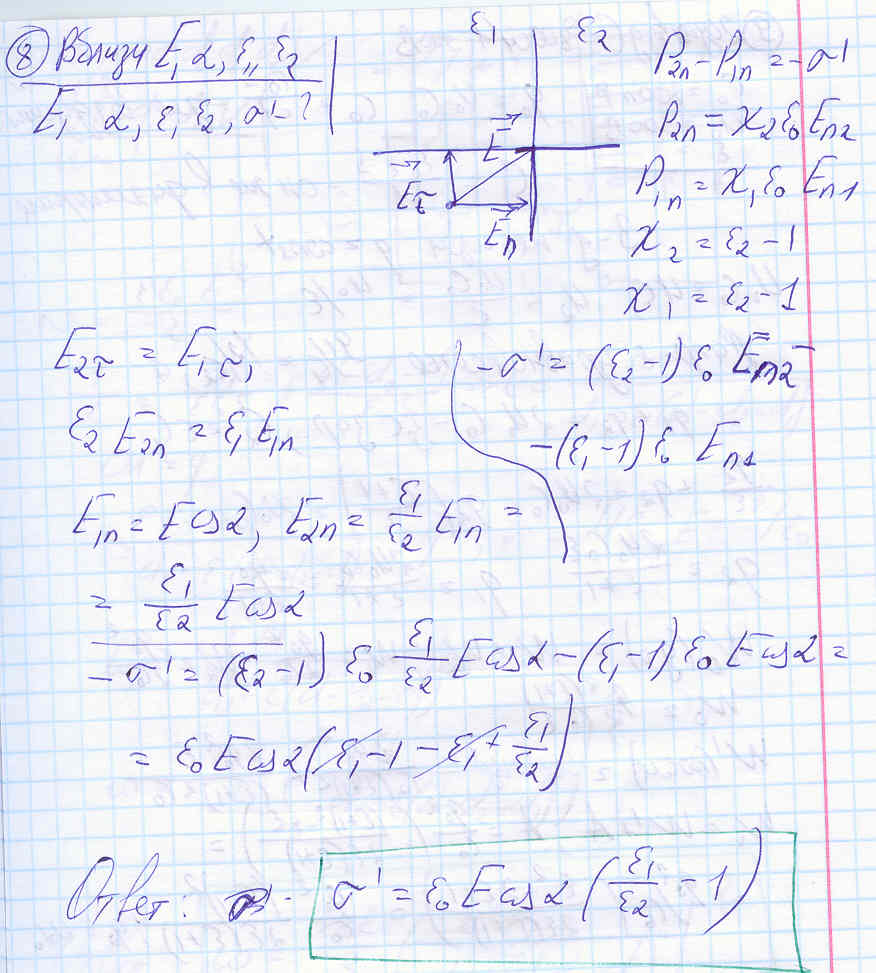 ⑧ Вблизи E, α, ε₁, ε₂
E, α, ε₁ ε₂, σ' - ?
ε₁ ε₂
E⃗
E⃗τ
E⃗n
P₂n - P₁n = -σ'
P₂n = χ₂ε₀En₂
P₁n = χ₁ε₀ En₁
χ₂ = ε₂ - 1
χ₁ = ε₂ - 1
E₂τ = E₁τ,
ε₂ E₂n = ε₁ E₁n
-σ' = (ε₂-1) ε₀ En₂ -
-(ε₁-1) ε₀ En₁
E₁n = E cos α; E₂n = ε₁/ε₂ E₁n =
= ε₁/ε₂ E cos α
-σ' = (ε₂-1) ε₀ ε₁/ε₂ E cos α - (ε₁-1) ε₀ E cos α =
= ε₀ E cos α (ε₁ - 1 - ε₁ + ε₁/ε₂)
Ответ: σ' = ε₀ E cos α (ε₁/ε₂ - 1)